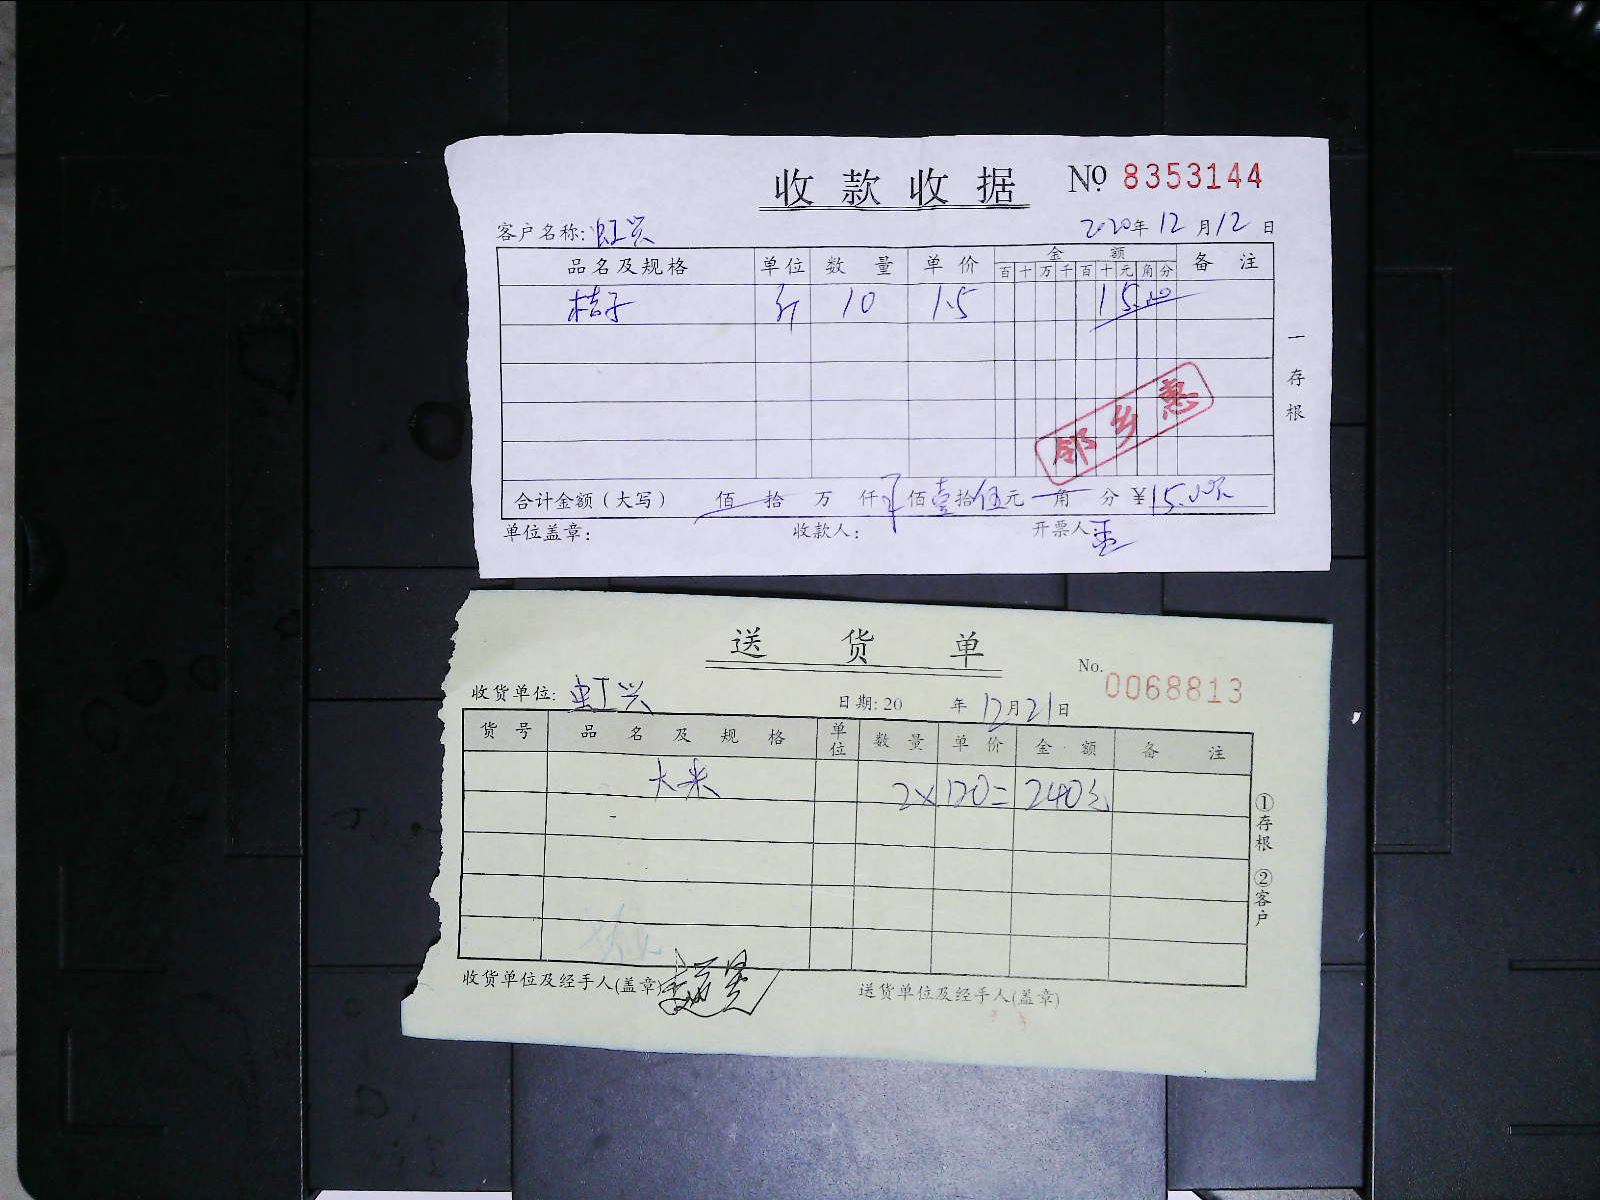 收款收据 No 8353144
客户名称: 虹兴 2020年12月12日
品名及规格 单位 数量 单价 金额 备注
百十万千百十元角分
桔子 斤 10 1.5 15.00
一存根
邻乡惠
合计金额(大写) 佰拾万仟佰壹拾伍元角分 ¥15.00
单位盖章: 收款人: 开票人
送货单 No. 0068813
收货单位: 虹兴 日期:20 年12月21日
货号 品名及规格 单位 数量 单价 金额 备注
大米 2×120=240元
①存根 ②客户
收货单位及经手人(盖章) 送货单位及经手人(盖章)